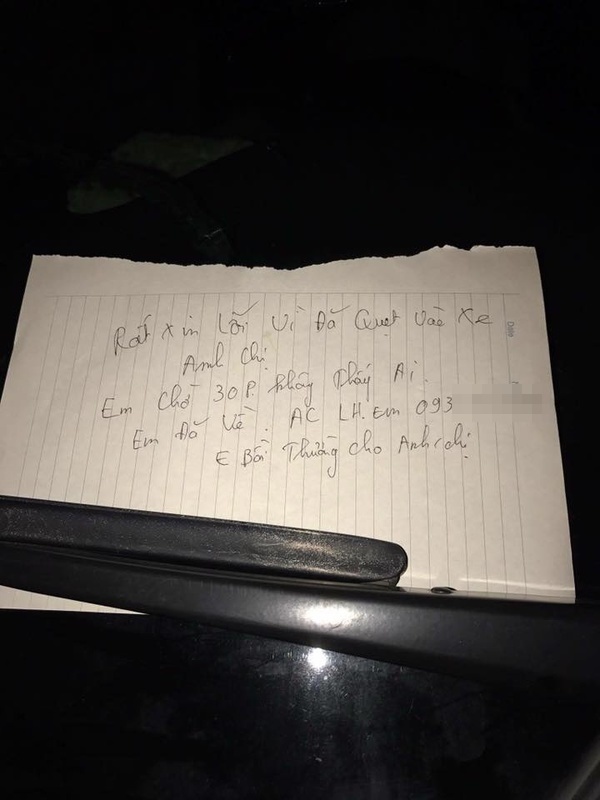 Rất xin lỗi vì đã quẹt vào xe
Anh chị
Em chờ 30P. không thấy Ai.
Em đã về. AC LH. Em 093
E Bồi Thường cho Anh/chị
Date